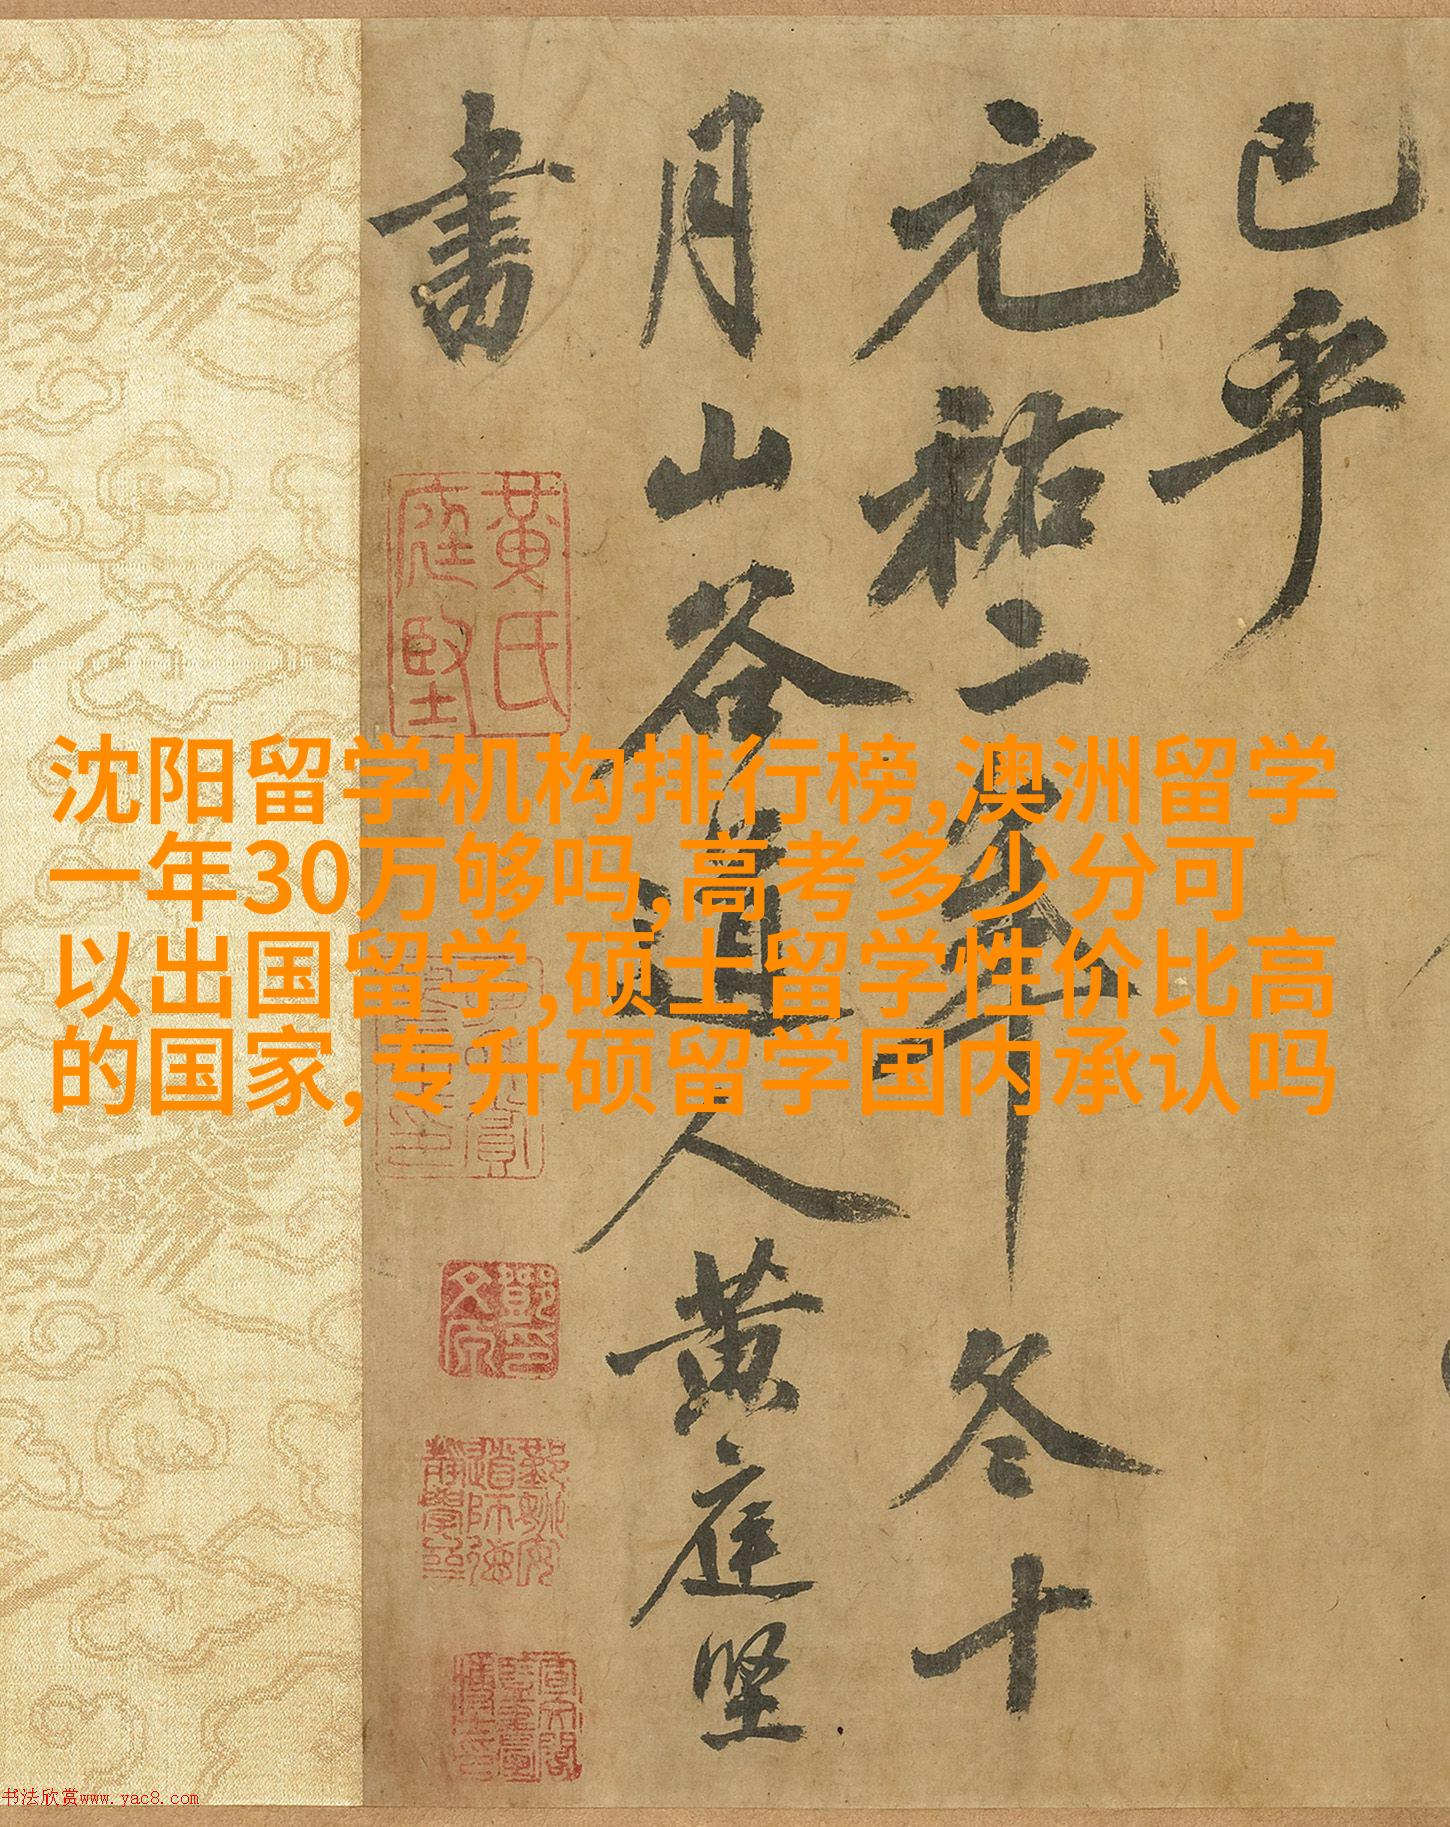 已乎
元祐二年冬十
月山谷道人黄庭坚
書
黄氏
庭堅
沈阳留学机构排行榜,澳洲留学
一年30万够吗,高考多少分可
以出国留学,硕士留学性价比高
的国家,专升硕留学国内承认吗
书法欣赏www.yac8.com